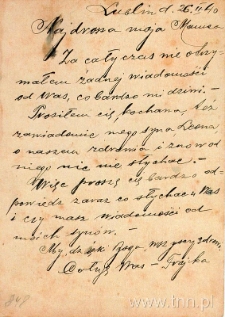 Lublin d. 26.II.40
Najdroższa moja Mamusiu
Za cały czas nie otrzy-
małem żadnej wiadomości
od Was, co bardzo mi dziwi. –
Prosiłem cię kochana
zawiadomić mego syna
o naszem zdrowiu i znów od
niego nic nie słychać. –
Więc proszę cię bardzo od-
powiedz zaraz co słychać u Was
i czy masz wiadomości od
moich synów. –
My, dzięki Bogu
Was –
www.tnn.pl